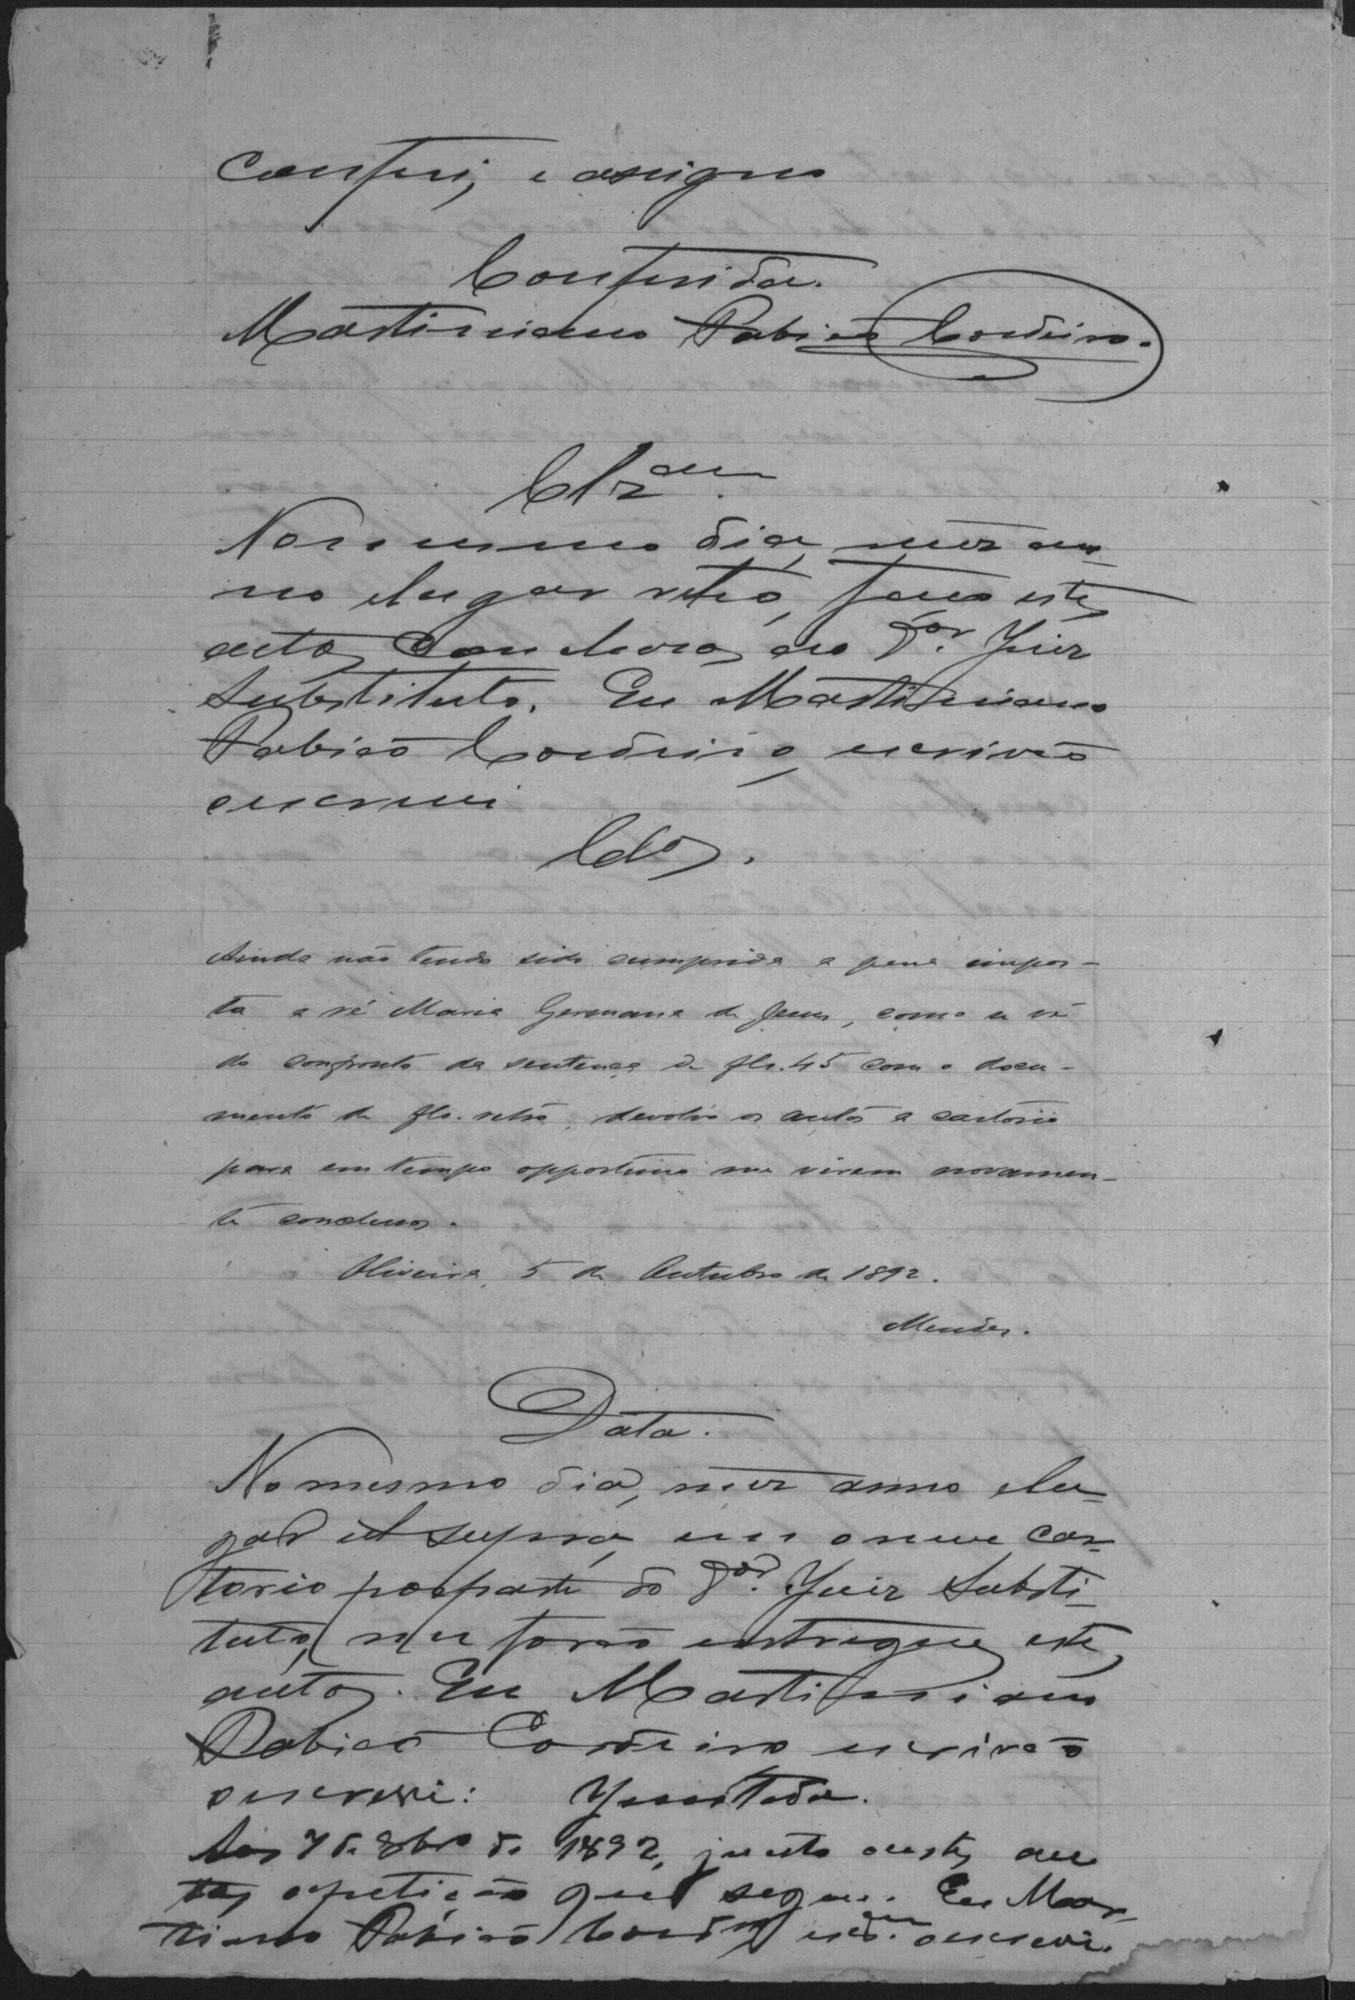 Conferi, e assigno
Conferida.
Martiniano Fabião Cordeiro.
Clzam.
No mesmo dia, mez an-
no e lugar retro, faço estes
autos conclusos ao Dor. Juiz
Substituto. Eu Martiniano
Fabião Cordeiro, escrivão
o escrevi
Clos.
Ainda não tendo sido cumprida a pena impos-
ta a ré Maria Germana de Jesus, como se vê
do confronto da sentença de fls. 45 com o docu-
mento de fls. retro, devolvo os autos a cartorio
para em tempo opportuno me virem novamen-
te conclusos.
Oliveira, 5 de Outubro de 1892.
Mendes.
Data.
No mesmo dia, mez anno e lu-
gar et supra, em o meu car-
torio por parte do Dor. Juiz Substi-
tuto, me forão entregues estes
autos. Eu Martiniano
Fabião Cordeiro escrivão
o escrevi: Juntada.
Aos 7 de 8bro de 1892, junto a estes au
tos a petição que segue. Eu Mar-
tiniano Fabião Cordro escam o escrevi.